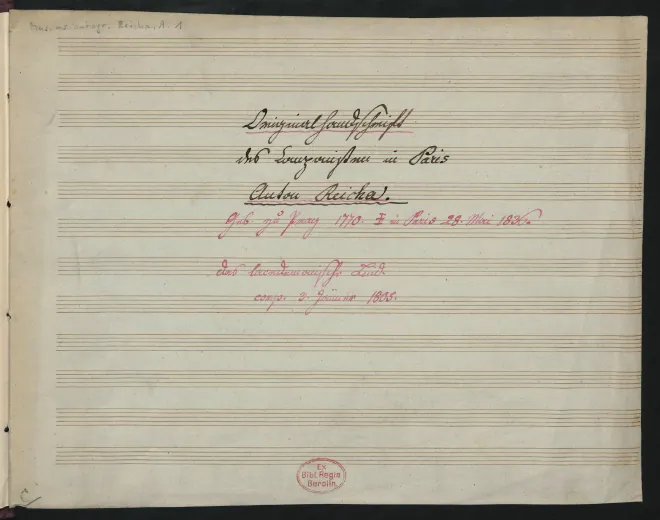 Mus. ms. autogr. Reicha, A. 1
Originalhandschrift
des Componisten in Paris
Anton Reicha.
Geb. zu Prag 1770. † in Paris 28. Mai 1836.
das lacedämonische Lied.
comp. 3. Jänner 1805.
Ex
Bibl. Regia
Berolin.